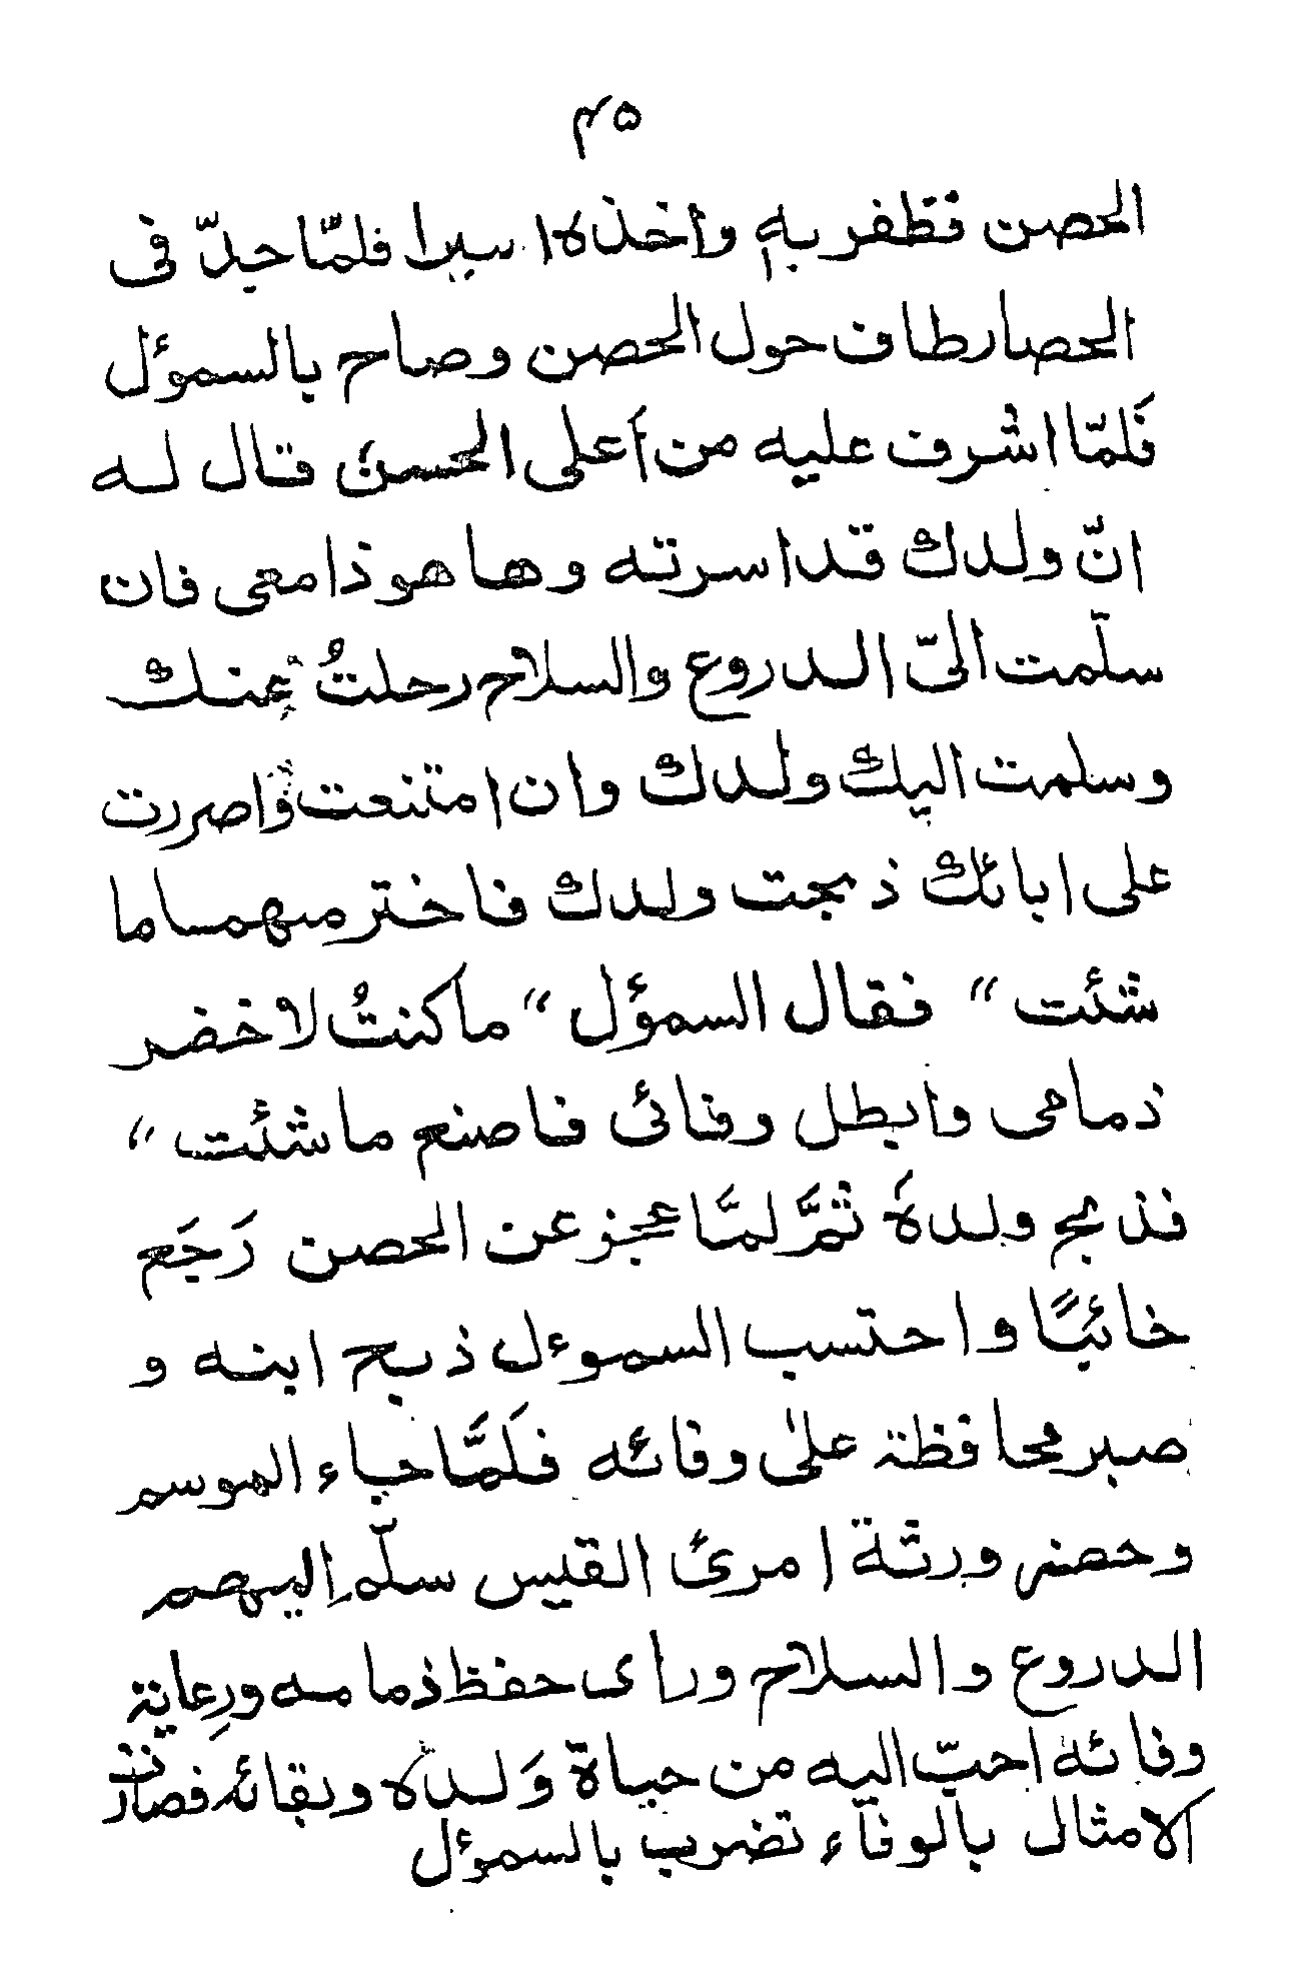 ۴۵
الحصن فظفر بهٖ واخذه اسيرا فلمّا جدّ فى
الحصار طاف حول الحصن وصاح بالسموؤل
فَلمّا اشرف عليه من أعلى الحسن قال له
انّ ولدك قد اسرته وها هو ذا معى فان
سلّمت الىّ الدروع والسلاح رحلتُ عنك
وسلمت اليك ولدك وان امتنعت واصررت
على ابائك ذبحت ولدك فاختر منهما ما
شئت ” فقال السموؤل ” ما كنتُ لاخضر
ذمامى وابطل وفائى فاصنع ما شئت “
فذبح ولدهٗ ثمَّ لمَّا عجز عن الحصن رَجَع
خائبًا واحتسب السموءل ذبح ابنه و
صبر محافظة علىٰ وفائه فَلَمَّا جاء الموسم
وحضر ورثة امرئ القيس سلّم اليهم
الدروع والسلاح وراى حفظ ذمامه ورِعاية
وفائهٖ احبّ اليه من حياة وَلده وبقائه فصارت
الامثال بالوفاء تضرب بالسموؤل